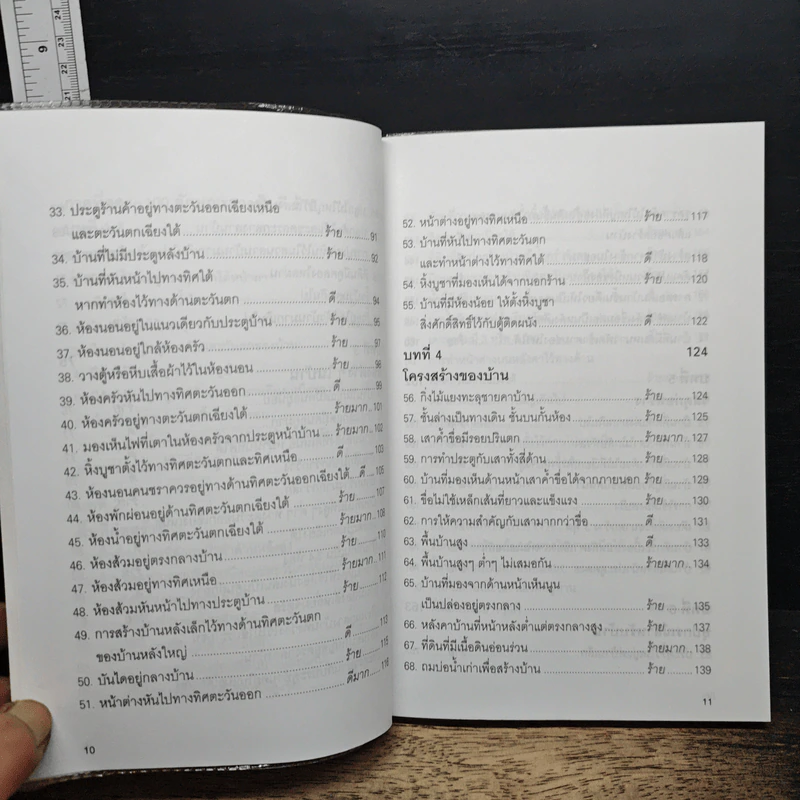 33. ประตูร้านค้าอยู่ทางตะวันออกเฉียงเหนือ
และตะวันตกเฉียงใต้ ร้าย 91
34. บ้านที่ไม่มีประตูหลังบ้าน ร้าย 92
35. บ้านที่หันหน้าไปทางทิศใต้
หากทำห้องไว้ทางด้านตะวันตก ดี 94
36. ห้องนอนอยู่ในแนวเดียวกับประตูบ้าน ร้าย 95
37. ห้องนอนอยู่ใกล้ห้องครัว ร้าย 96
38. วางตู้หรือหีบเสื้อผ้าไว้ในห้องนอน ร้าย 98
39. ห้องครัวหันไปทางทิศตะวันออก ดี 99
40. ห้องครัวอยู่ทางตะวันตกเฉียงใต้ ร้ายมาก 101
41. มองเห็นไฟที่เตาในห้องครัวจากประตูหน้าบ้าน ร้ายมาก 102
42. หิ้งบูชาตั้งไว้ทางทิศตะวันตกและทิศเหนือ ดี 103
43. ห้องนอนคนชราควรอยู่ทางด้านตะวันออกเฉียงใต้ ดี 105
44. ห้องพักผ่อนอยู่ด้านตะวันตกเฉียงใต้ ร้าย 107
45. ห้องน้ำอยู่ทางทิศตะวันตกเฉียงใต้ ร้ายมาก 108
46. ห้องส้วมอยู่ตรงกลางบ้าน ร้าย 110
47. ห้องส้วมอยู่ทางทิศเหนือ ร้ายมาก 111
48. ห้องส้วมหันหน้าไปทางประตูบ้าน ร้าย 112
49. การสร้างบ้านหลังเล็กไว้ทางด้านทิศตะวันตก
ของบ้านหลังใหญ่ ดี 113
50. บันไดอยู่กลางบ้าน ร้าย 115
51. หน้าต่างหันไปทางทิศตะวันออก ดีมาก 116
10
52. หน้าต่างอยู่ทางทิศเหนือ ร้าย 117
53. บ้านที่หันไปทางทิศตะวันตก
และทำหน้าต่างไว้ทางทิศใต้ ดี 118
54. หิ้งบูชาที่มองเห็นได้จากนอกร้าน ร้าย 120
55. บ้านที่มีห้องน้อย ให้ตั้งหิ้งบูชา
สิ่งศักดิ์สิทธิ์ไว้กับตู้ติดผนัง ดี 122
บทที่ 4 124
โครงสร้างของบ้าน
56. กิ่งไม้แยงทะลุชายคาบ้าน ร้าย 124
57. ชั้นล่างเป็นทางเดิน ชั้นบนกั้นห้อง ร้าย 125
58. เสาค้ำชื่อมีรอยปริแตก ร้ายมาก 127
59. การทำประตูกับเสาทั้งสี่ด้าน ร้าย 128
60. บ้านที่มองเห็นด้านหน้าเสาค้ำชื่อได้จากภายนอก ร้าย 129
61. ชื่อไม่ใช้เหล็กเส้นที่ยาวและแข็งแรง ร้าย 130
62. การให้ความสำคัญกับเสามากกว่าชื่อ ดี 131
63. พื้นบ้านสูง ดี 133
64. พื้นบ้านสูงๆ ต่ำๆ ไม่เสมอกัน ร้ายมาก 134
65. บ้านที่มองจากด้านหน้าเห็นนูน
เป็นปล่องอยู่ตรงกลาง ร้าย 135
66. หลังคาบ้านที่หน้าหลังต่ำแต่ตรงกลางสูง ร้าย 137
67. ที่ดินที่มีเนื้อดินอ่อนร่วน ร้ายมาก 138
68. ถมบ่อน้ำเก่าเพื่อสร้างบ้าน ร้าย 139
11